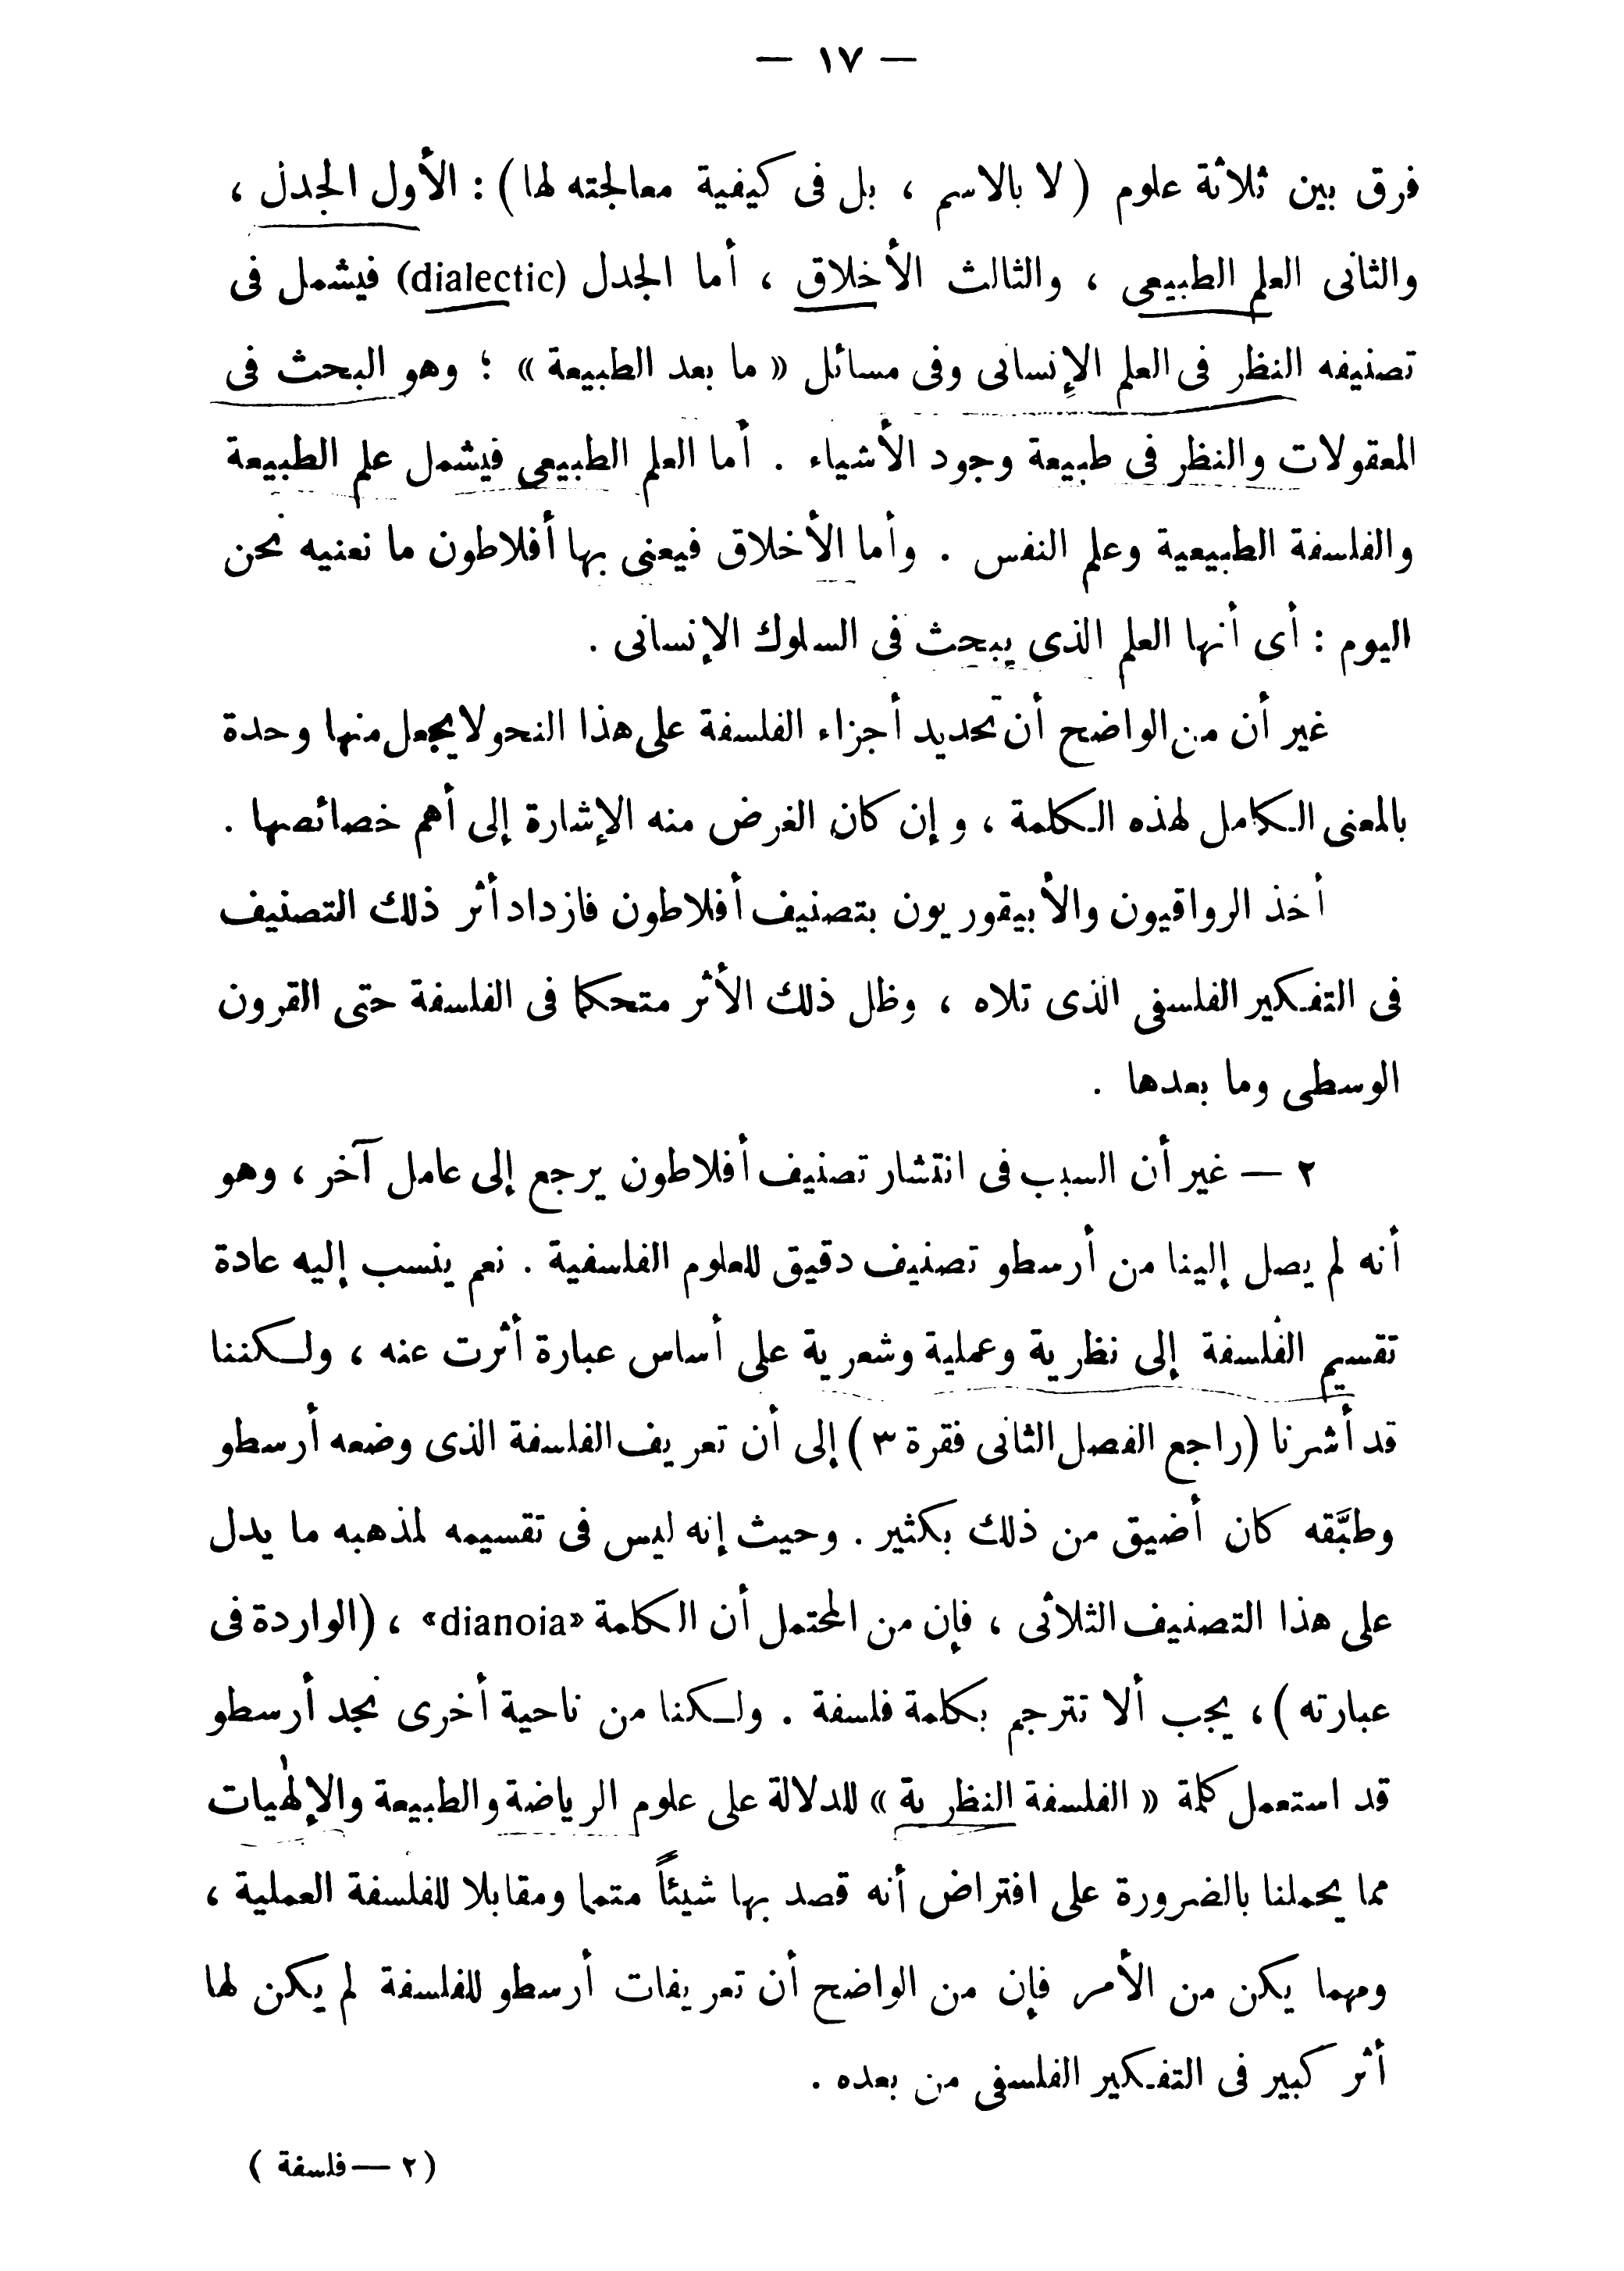 — ١٧ —
فرق بين ثلاثة علوم ( لا بالاسم ، بل فى كيفية معالجته لها ) : الأول الجدل ،
والثانى العلم الطبيعى ، والثالث الأخلاق ، أما الجدل (dialectic) فيشمل فى
تصنيفه النظر فى العلم الإنسانى وفى مسائل « ما بعد الطبيعة » ؛ وهو البحث فى
المعقولات والنظر فى طبيعة وجود الأشياء . أما العلم الطبيعى فيشمل علم الطبيعة
والفلسفة الطبيعية وعلم النفس . وأما الأخلاق فيعنى بها أفلاطون ما نعنيه نحن
اليوم : أى أنها العلم الذى يبحث فى السلوك الإنسانى .
غير أن من الواضح أن تحديد أجزاء الفلسفة على هذا النحو لا يجعل منها وحدة
بالمعنى الكامل لهذه الكلمة ، وإن كان الغرض منه الإشارة إلى أهم خصائصها .
أخذ الرواقيون والأبيقوريون بتصنيف أفلاطون فازداد أثر ذلك التصنيف
فى التفكير الفلسفى الذى تلاه ، وظل ذلك الأثر متحكما فى الفلسفة حتى القرون
الوسطى وما بعدها .
٢ — غير أن السبب فى انتشار تصنيف أفلاطون يرجع إلى عامل آخر ، وهو
أنه لم يصل إلينا من أرسطو تصنيف دقيق للعلوم الفلسفية . نعم ينسب إليه عادة
تقسيم الفلسفة إلى نظرية وعملية وشعرية على أساس عبارة أثرت عنه ، ولكننا
قد أشرنا (راجع الفصل الثانى فقرة ٣ ) إلى أن تعريف الفلسفة الذى وضعه أرسطو
وطبَّقه كان أضيق من ذلك بكثير . وحيث إنه ليس فى تقسيمه لمذهبه ما يدل
على هذا التصنيف الثلاثى ، فإن من المحتمل أن الكلمة «dianoia» ، (الواردة فى
عبارته ) ، يجب ألا تترجم بكلمة فلسفة . ولكنا من ناحية أخرى نجد أرسطو
قد استعمل كلمة « الفلسفة النظرية » للدلالة على علوم الرياضة والطبيعة والإلهٰيات
مما يحملنا بالضرورة على افتراض أنه قصد بها شيئاً متمما ومقابلا للفلسفة العملية ،
ومهما يكن من الأمر فإن من الواضح أن تعريفات أرسطو للفلسفة لم يكن لها
أثر كبير فى التفكير الفلسفى من بعده .
( ٢ — فلسفة )